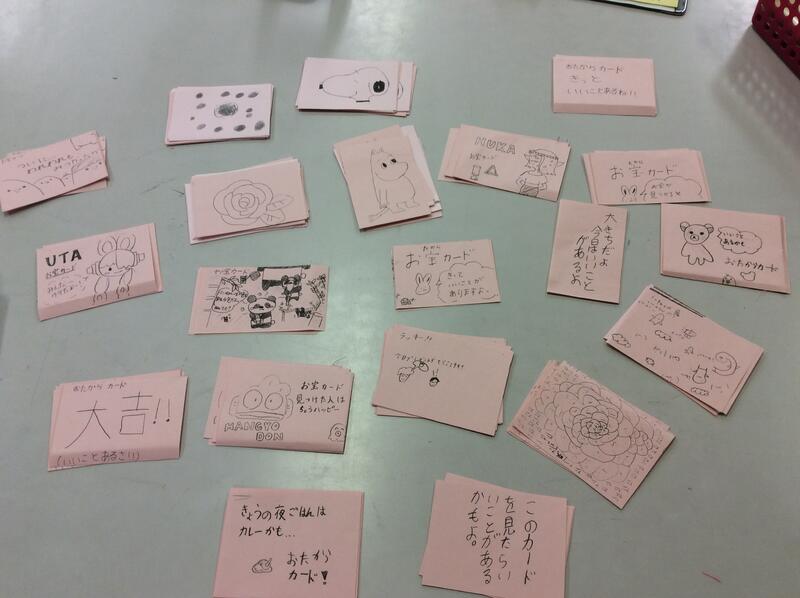 おたからカード
きっと
いいことあるね!!
HUKA
お宝カード
たから
お宝カード
お宝が
見つかるよ
大きちだよ
今日はいいこと
があるよ
いいこと
あるかも
おたカリカード
UTA
お宝カード
お宝カード
たから
お宝カード
きっと
いいことが
ありますよ。
ラッキー!!
おたから カード
大吉!!
(いいことあるさ!!)
お宝カード
見つけた人は
ちょうハッピー
HANGYO
DON
きょうの夜ごはんは
カレーかも...
おたから
カード!
このカード
を見たらい
いことがある
かもよ。